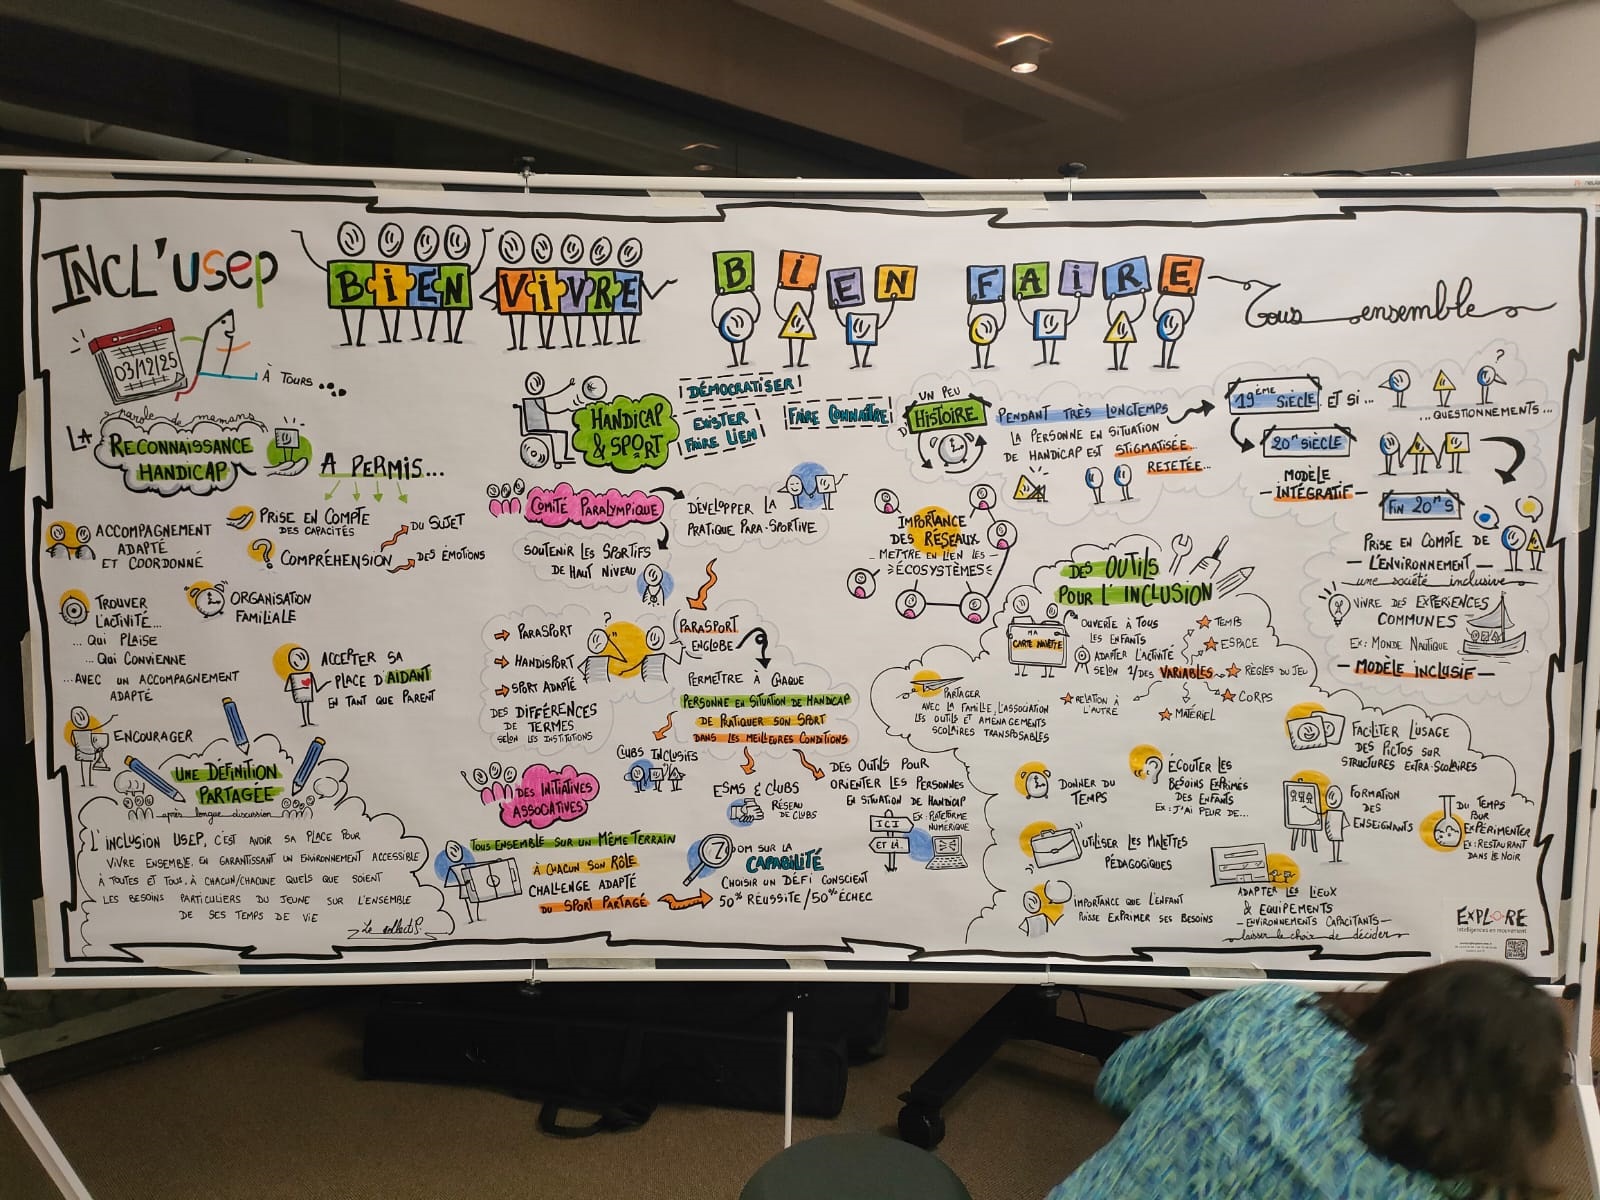 INCL'USEP
BIEN VIVRE
BIEN FAIRE
Tous ensemble
03/12/25
À TOURS ...
parole de mamans
LA RECONNAISSANCE
HANDICAP
A PERMIS...
ACCOMPAGNEMENT
ADAPTÉ
ET COORDONNÉ
PRISE EN COMPTE
DES CAPACITÉS
COMPRÉHENSION
DU SUJET
DES ÉMOTIONS
TROUVER
L'ACTIVITÉ...
... QUI PLAISE
... QUI CONVIENNE
... AVEC UN ACCOMPAGNEMENT
ADAPTÉ
ORGANISATION
FAMILIALE
ACCEPTER SA
PLACE D'AIDANT
EN TANT QUE PARENT
ENCOURAGER
UNE DÉFINITION
PARTAGÉE
après longue discussion
L'INCLUSION USEP, C'EST AVOIR SA PLACE POUR
VIVRE ENSEMBLE, EN GARANTISSANT UN ENVIRONNEMENT ACCESSIBLE
À TOUTES ET TOUS, À CHACUN/CHACUNE QUELS QUE SOIENT
LES BESOINS PARTICULIERS DU JEUNE SUR L'ENSEMBLE
DE SES TEMPS DE VIE
Le collectif.
HANDICAP
& SPORT
DÉMOCRATISER!
EXISTER
FAIRE LIEN
FAIRE CONNAÎTRE
COMITÉ PARALYMPIQUE
DÉVELOPPER LA
PRATIQUE PARA-SPORTIVE
SOUTENIR LES SPORTIFS
DE HAUT NIVEAU
PARASPORT
HANDISPORT
SPORT ADAPTÉ
DES DIFFÉRENCES
DE TERMES
SELON LES INSTITUTIONS
?
PARASPORT
ENGLOBE
PERMETTRE À CHAQUE
PERSONNE EN SITUATION DE HANDICAP
DE PRATIQUER SON SPORT
DANS LES MEILLEURES CONDITIONS
CLUBS INCLUSIFS
ESMS & CLUBS
RÉSEAU
DE CLUBS
DES OUTILS POUR
ORIENTER LES PERSONNES
EN SITUATION DE HANDICAP
EX: PLATEFORME
NUMÉRIQUE
ICI
ET LÀ
DES INITIATIVES
ASSOCATIVES
TOUS ENSEMBLE SUR UN MÊME TERRAIN
À CHACUN SON RÔLE
CHALLENGE ADAPTÉ
DU SPORT PARTAGÉ
ZOOM SUR LA
CAPABILITÉ
CHOISIR UN DÉFI CONSCIENT
50% RÉUSSITE / 50% ÉCHEC
UN PEU
D'HISTOIRE
PENDANT TRÈS LONGTEMPS
LA PERSONNE EN SITUATION
DE HANDICAP EST STIGMATISÉE
REJETÉE...
19ÈME SIÈCLE
ET SI ...
?
... QUESTIONNEMENTS ...
20ME SIÈCLE
MODÈLE
INTÉGRATIF
FIN 20ME S
PRISE EN COMPTE DE
L'ENVIRONNEMENT
une société inclusive
VIVRE DES EXPÉRIENCES
COMMUNES
EX: MONDE NAUTIQUE
MODÈLE INCLUSIF
IMPORTANCE
DES RÉSEAUX
METTRE EN LIEN LES
ÉCOSYSTÈMES
DES OUTILS
POUR L'INCLUSION
MA
CARTE NAVETTE
OUVERTE À TOUS
LES ENFANTS
ADAPTER L'ACTIVITÉ
SELON 1/DES VARIABLES
TEMPS
ESPACE
RÈGLES DU JEU
CORPS
MATÉRIEL
RELATION À
L'AUTRE
PARTAGER
AVEC LA FAMILLE, L'ASSOCIATION
LES OUTILS ET AMÉNAGEMENTS
SCOLAIRES TRANSPOSABLES
FACILITER L'USAGE
DES PICTOS SUR
STRUCTURES EXTRA-SCOLAIRES
DONNER DU
TEMPS
ÉCOUTER LES
BESOINS EXPRIMÉS
DES ENFANTS
EX: J'AI PEUR DE...
FORMATION
DES
ENSEIGNANTS
DU TEMPS
POUR
EXPÉRIMENTER
EX: RESTAURANT
DANS LE NOIR
UTILISER LES MALETTES
PÉDAGOGIQUES
IMPORTANCE QUE L'ENFANT
PUISSE EXPRIMER SES BESOINS
ADAPTER LES LIEUX
& ÉQUIPEMENTS
ENVIRONNEMENTS CAPACITANTS
laisser le choix de décider
EXPLORE
Intelligences en mouvement